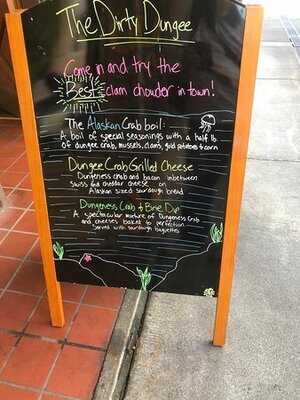 The Dirty Dungee
Come in and try the
Best clam chowder in town!
The Alaskan Crab boil:
A boil of special seasonings with a half lb
of dungee crab, mussels, clams, gold potatoes + corn
Dungee Crab Grilled Cheese
Dungeness crab and bacon inbetween
Swiss and cheddar cheese on
Alaskan sized sourdough bread
Dungeness Crab & Brie Dip
A spectacular mixture of Dungeness Crab
and cheeses baked to perfection
Served with sourdough baguettes